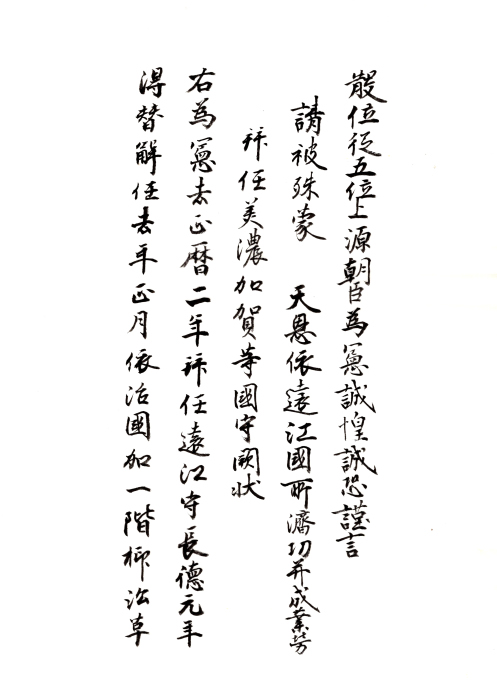 散位従五位上源朝臣為憲誠惶誠恐謹言
請被殊蒙 天恩依遠江國所濟功并成業勞
拜任美濃加賀等國守闕状
右為憲去正暦二年拜任遠江守長德元年
得替解任去年正月依治國加一階抑以草